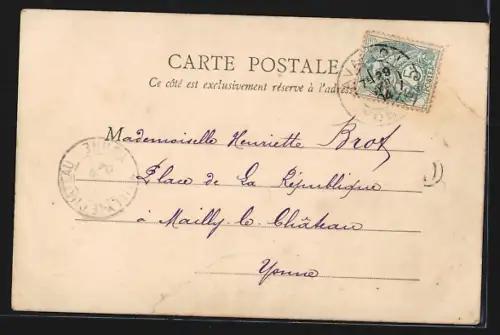 CARTE POSTALE
Ce côté est exclusivement réservé à l'adresse
Mademoiselle Henriette Brot
Place de La République
à Mailly-le-Château
Yonne